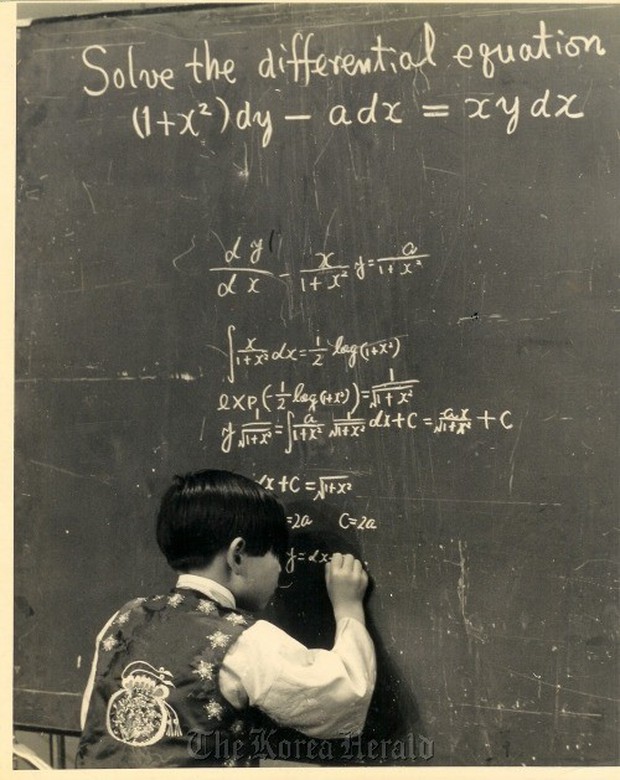 Solve the differential equation
(1+x²)dy − adx = xydx
dy/dx − x/(1+x²) y = a/(1+x²)
∫ x/(1+x²) dx = 1/2 log(1+x²)
exp(−1/2 log(1+x²)) = 1/√(1+x²)
y 1/√(1+x²) = ∫ a/(1+x²) 1/√(1+x²) dx + C = ax/√(1+x²) + C
x + C = √(1+x²)
=2a C=2a
y = αx
The Korea Herald